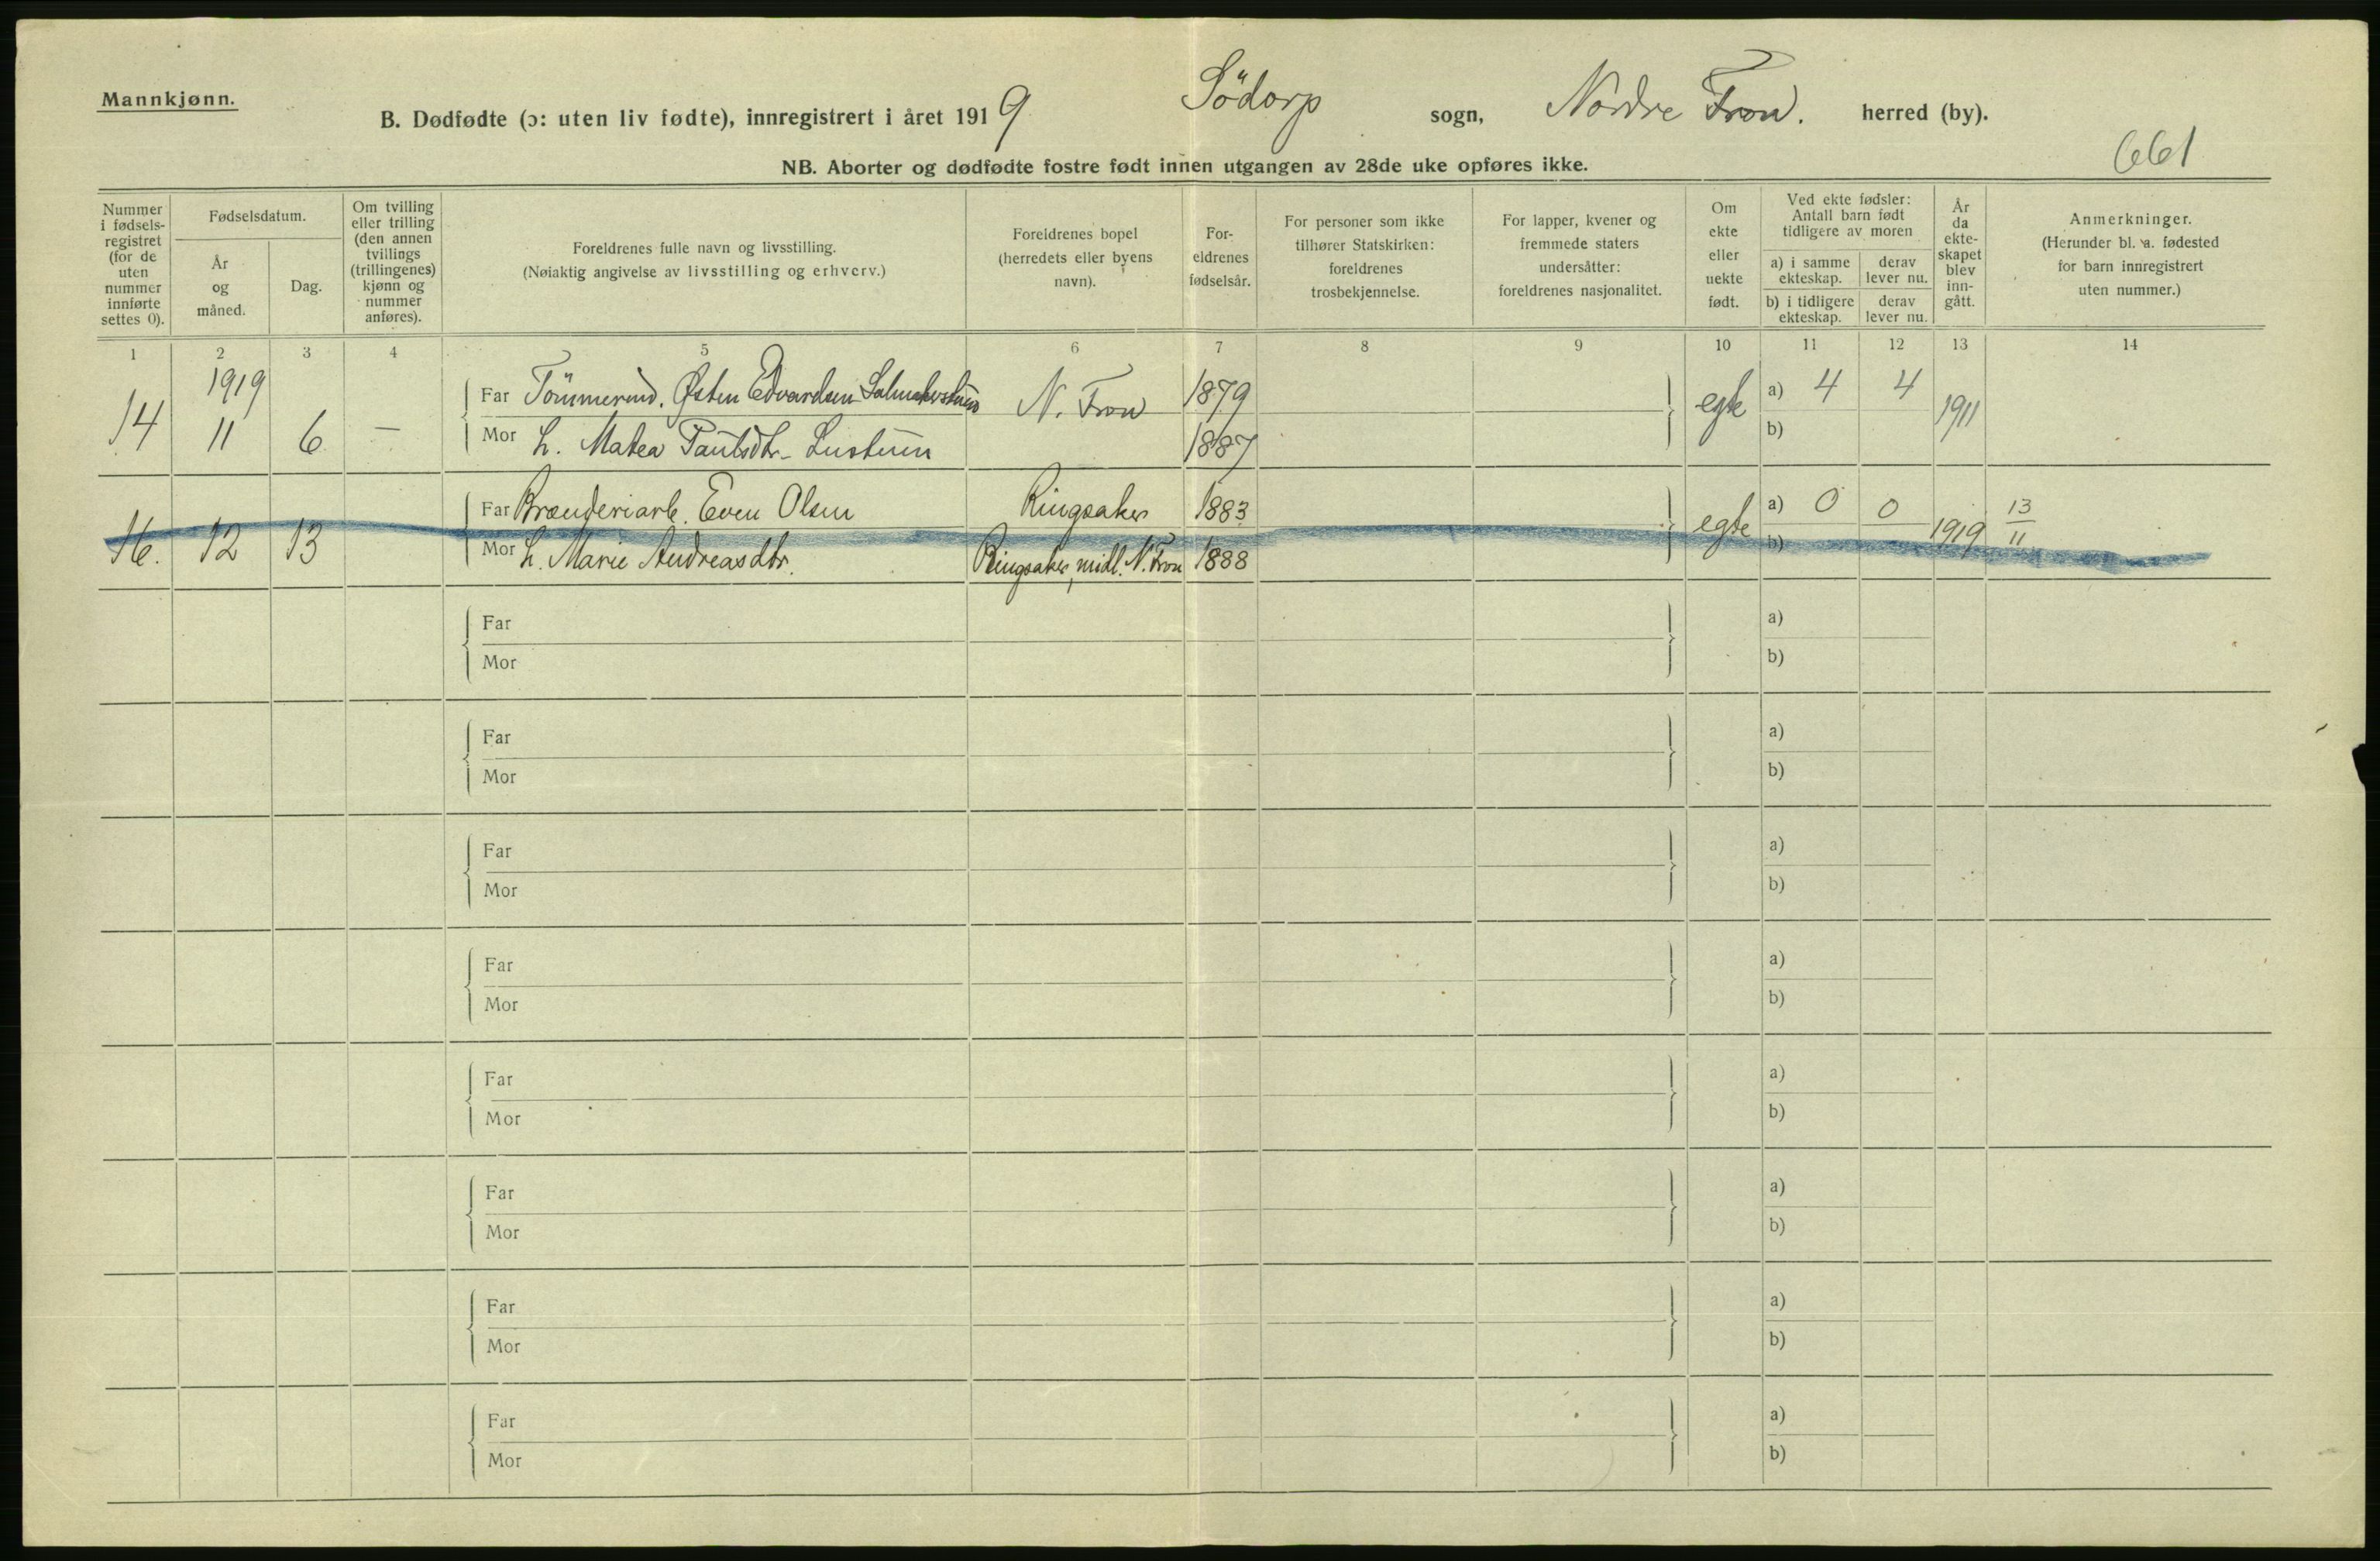 Mannkjønn.
B. Dødfødte (ɔ: uten liv fødte), innregistrert i året 1919 Södorp sogn, Nordre Fron. herred (by).
661
NB. Aborter og dødfødte fostre født innen utgangen av 28de uke opføres ikke.
Nummer i fødsels- registret (for de uten nummer innførte settes 0).
Fødselsdatum.
År og måned.
Dag.
Om tvilling eller trilling (den annen tvillings (trillingenes) kjønn og nummer anføres).
Foreldrenes fulle navn og livsstilling.
(Nøiaktig angivelse av livsstilling og erhverv.)
Foreldrenes bopel (herredets eller byens navn).
For- eldrenes fødselsår.
For personer som ikke tilhører Statskirken: foreldrenes trosbekjennelse.
For lapper, kvener og fremmede staters undersåtter: foreldrenes nasjonalitet.
Om ekte eller uekte født.
Ved ekte fødsler: Antall barn født tidligere av moren
a) i samme ekteskap.
derav lever nu.
b) i tidligere ekteskap.
derav lever nu.
År da ekte- skapet blev inn- gått.
Anmerkninger.
(Herunder bl. a. fødested for barn innregistrert uten nummer.)
1 2 3 4 5 6 7 8 9 10 11 12 13 14
1919
Far Tömmermd. Østen Edvardsen N. Fron 1879 a) 4 4
14 11 6 — egte 1911
Mor h. Matea Paulsdtr. 1887 b)
Far Brænderiarb. Even Olsen Ringsaker 1883 a) 0 0 13
16. 12 13 egte 1919 11
Mor h. Marie Andreasdtr. Ringsaker, midl. N. Fron 1888 b)
Far a)
Mor b)
Far a)
Mor b)
Far a)
Mor b)
Far a)
Mor b)
Far a)
Mor b)
Far a)
Mor b)
Far a)
Mor b)
Far a)
Mor b)